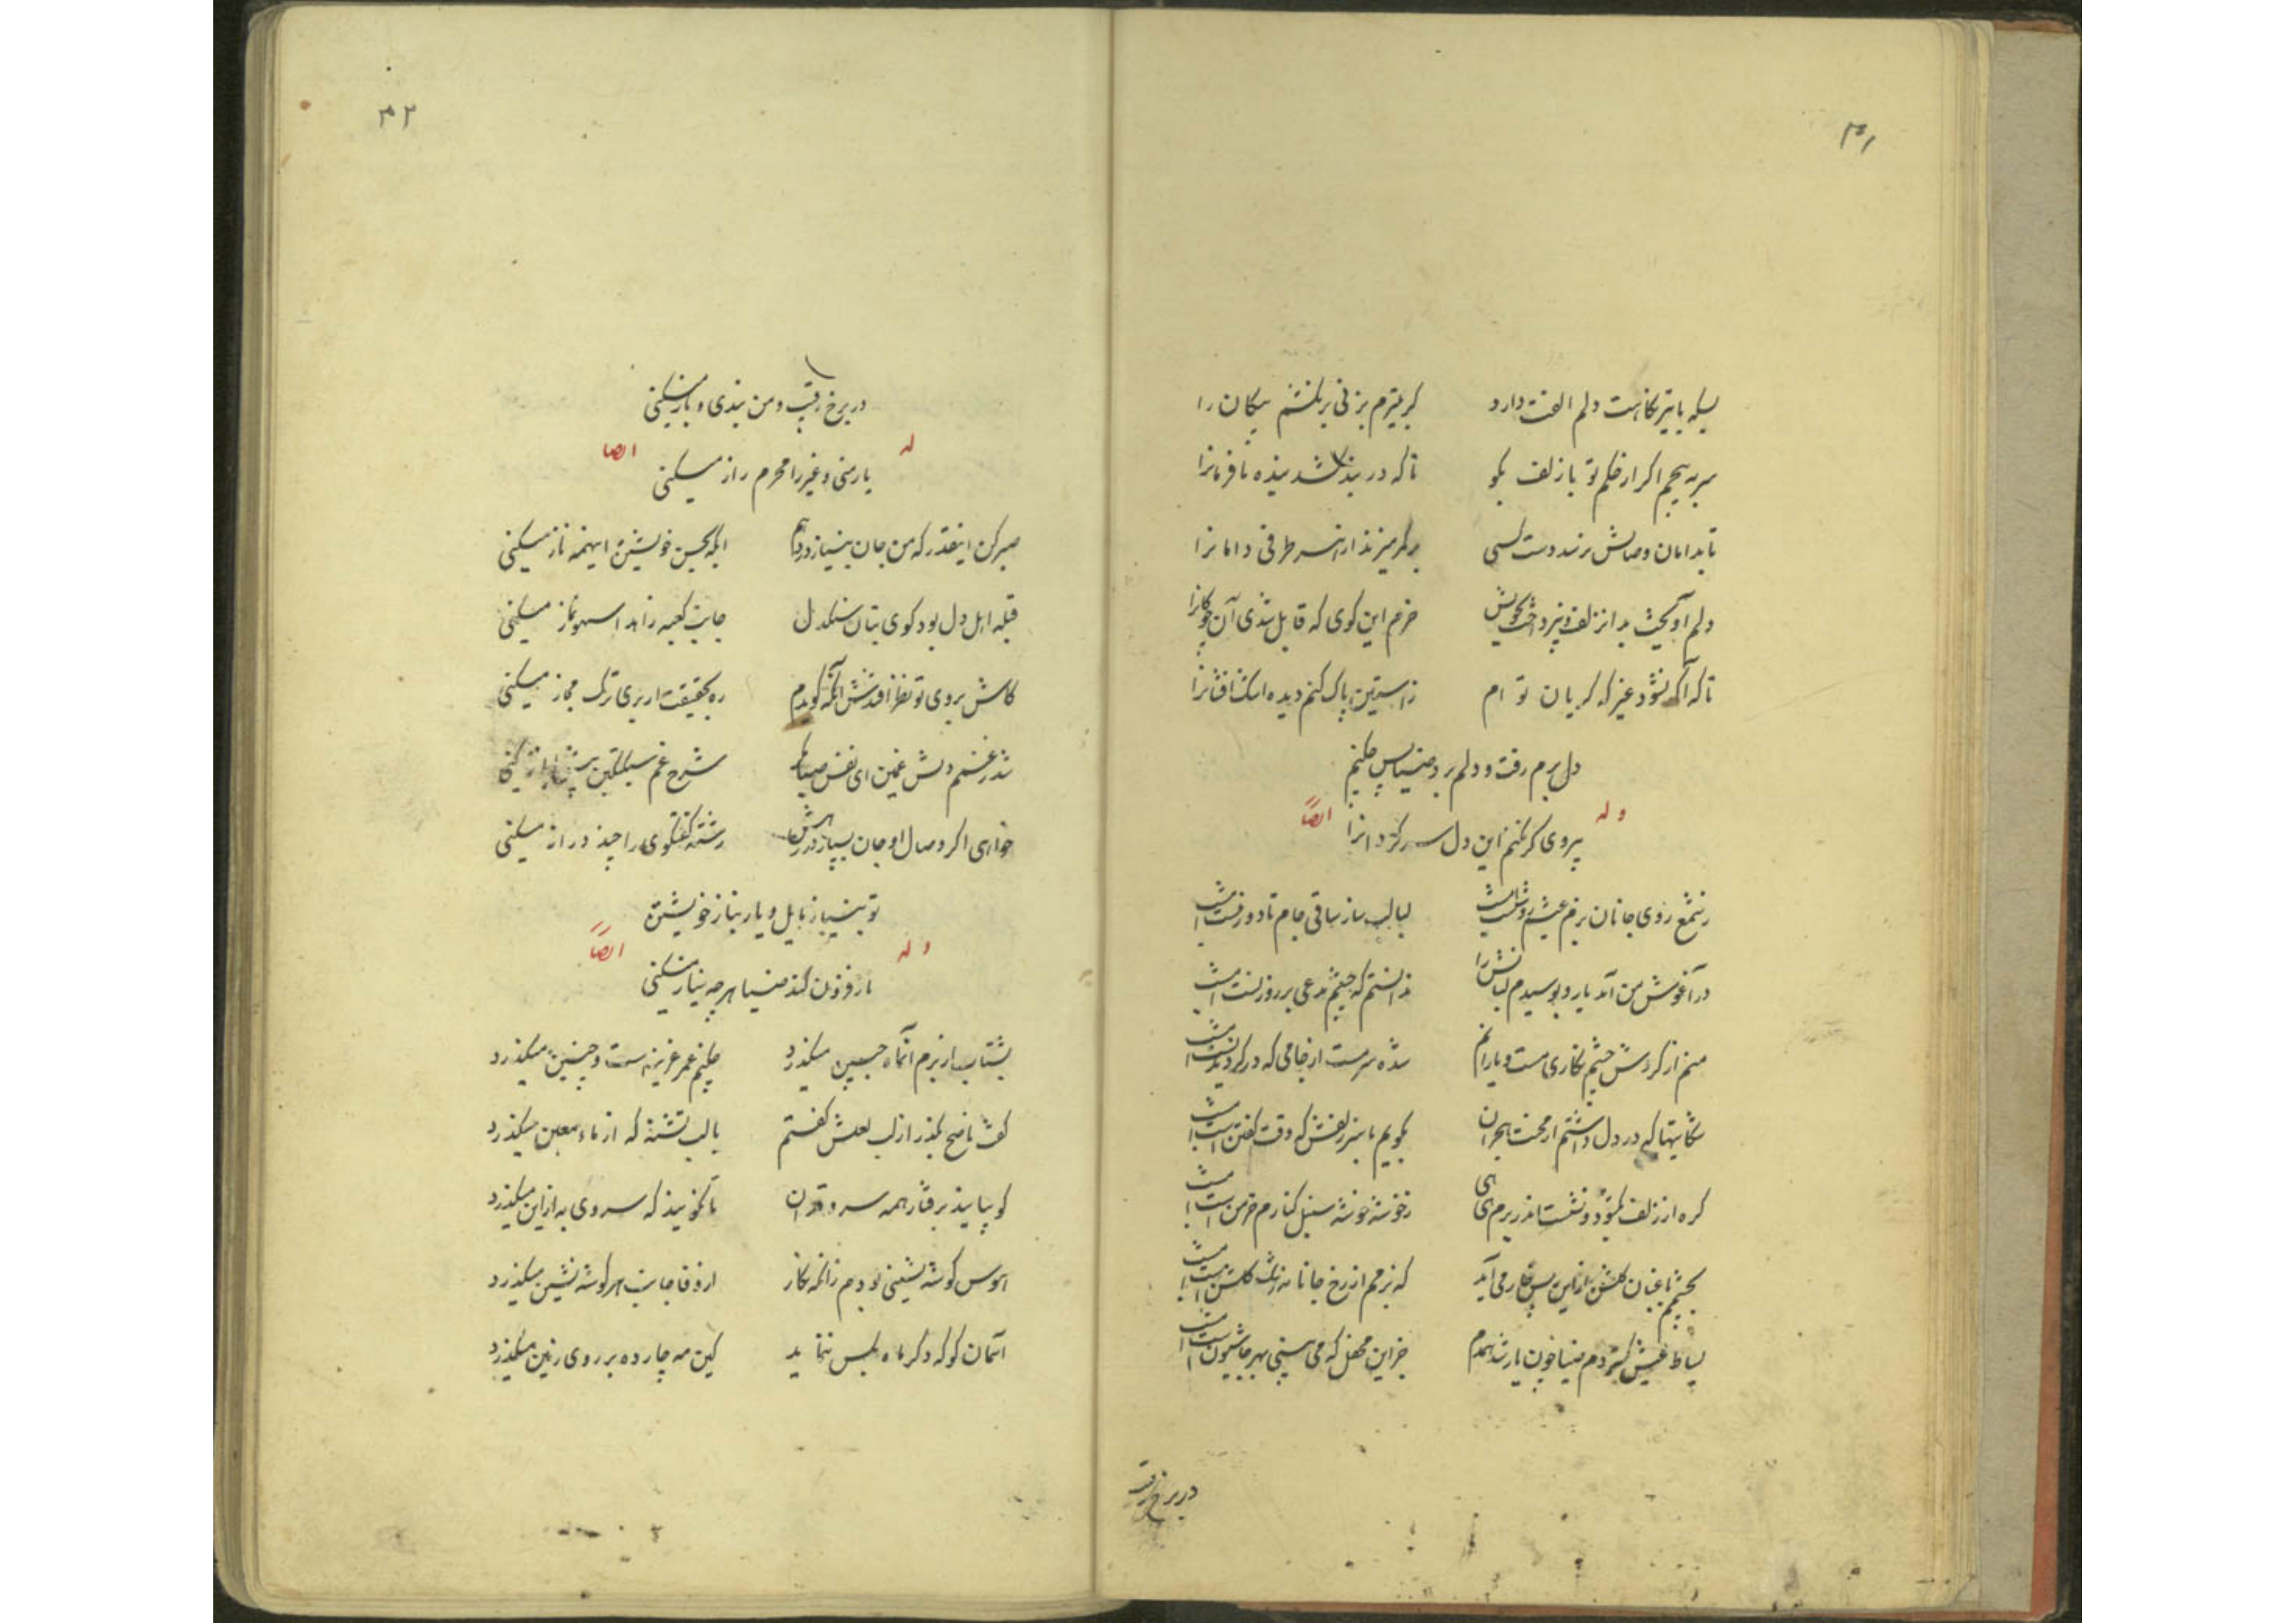 ۳۱
بسکه با تیر نگاهت دلم الفت دارد گر بتیرم بزنی برنکشم پیکان را
سر نه پیچم اگر از حکم تو با زلف بگو تا که در بند کشد بنده نافرمانرا
تا بدامان وصالش نرسد دست کسی بر کمر میزند از طرفی دامانرا
دلم آویخت بدان زلف و نپرداخت بخویش خرم این گوی که قابل شدی آن چوگانرا
تا که آگه نشود غیر که گریان تو ام ز آستین پاک کنم دیده اشک افشانرا
دل برم رفت و دلم برد ضیا پس چکنم
وله ایضاً
پیروی گر نکنم این دل سرگردانرا
ز شمع روی جانان بزم عیشم روشنست امشب لبالب ساز ساقی جام تا دور منست امشب
در آغوش من آمد یار و بوسیدم لبانش را ندانستم که چشم مدعی بر روزنست امشب
منم از گردش چشم نگاری مست و یارانم شده سرمست از جامی که در گردیدنست امشب
شکایتها که در دل داشتم از محنت هجران بگویم با سر زلفش که وقت گفتن است امشب
گره از زلف بگشود و نشست اندر برم ماهی ز خوشه خوشه سنبل کنارم خرمن است امشب
بچشمم باغبان گلشن ازین پس خار می آید که بزمم از رخ جانانه رشک گلشن است امشب
بساط عیش گستردم ضیا چون یار شد همدم جز این محفل که می بینی بهر جا شیونست امشب
در برخ رقیب
۳۲
در برخ رقیب و من بندی و باز میکنی
له ایضا
یار منی و غیر را محرم راز میکنی
صبر کن اینقدر که من جان بنیاز دردهم ایکه بحسن خویشتن اینهمه ناز میکنی
قبله اهل دل بود کوی بتان سنگدل جانب کعبه زاهدا سهو نماز میکنی
کاش بروی تو نظر افتدش آنکه گویدم ره بحقیقت ار بری ترک مجاز میکنی
شرح غم
خواهی اگر وصال او جان بسپار در رهش رشته گفتگوی را چند دراز میکنی
تو بنیاز مایل و یار بناز خویشتن
وله ایضاً
ناز فزون کند ضیا هر چه نیاز میکنی
بشتاب از بزم آنماه جبین میگذرد چکنم عمر عزیز است و چنین میگذرد
گفت ناصح بگذر از لب لعلش گفتم با لب تشنه که از ماء معین میگذرد
گو بیایید برفتار همه سرو قدان تا نگویند که سروی به ازین میگذرد
هوس گوشه نشینی بودم زانکه نگار از وفا جانب هر گوشه نشین میگذرد
آسمان گو که دگر ماه بکس ننماید کین مه چارده بر روی زمین میگذرد